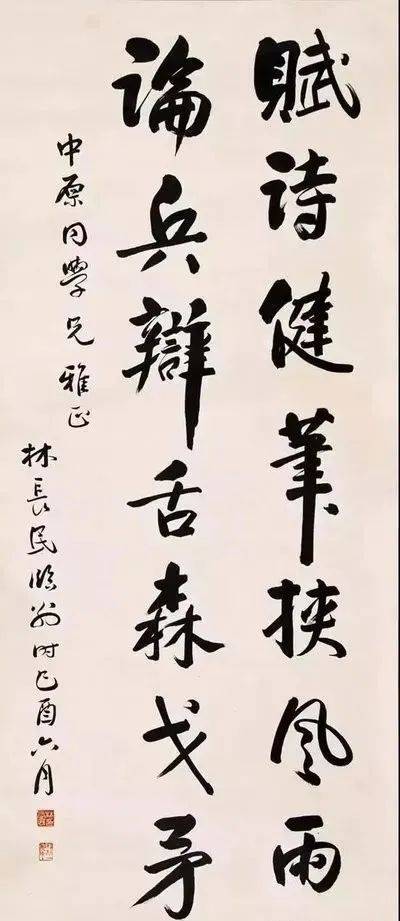 賦詩健筆挾風雨
論兵辯舌森戈矛
中原同學兄雅正
林長民臨別時己酉六月